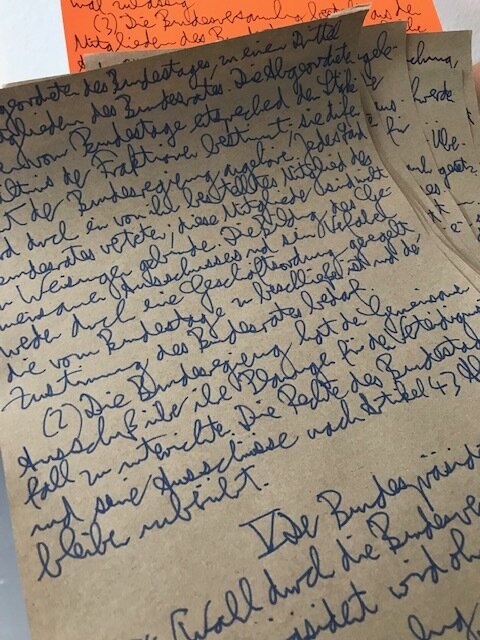 mal zulässig.
(3) Die Bundesversammlung besteht aus den
Mitgliedern des
geordneten des Bundestages, zu einem Drittel
gliedern des Bundesrates. Die Abgeordneten
vom Bundestage entsprechend dem Stärke
ältnis der Fraktionen bestimmt, sie dürfen
der Bundesregierung angehören. Jedes Land
rd durch ein von ihm bestelltes Mitglied des
undesrates vertreten; diese Mitglieder sind nicht
n Weisungen gebunden. Die Bildung des Ge-
meinsamen Ausschusses und sein Verfahren
werden durch eine Geschäftsordnung geregelt,
die vom Bundestage zu beschließen ist und der
Zustimmung des Bundesrates bedarf.
(2) Die Bundesregierung hat den Gemeinsamen
Ausschuß über ihre Planungen für den Verteidigungs
fall zu unterrichten. Die Rechte des Bundestages
und seiner Ausschüsse nach Artikel 43 Abs
bleiben unberührt.
V Der Bundespräside
Wahl durch die Bundesver
äsident wird ohn
chung,
werde
Über-
es